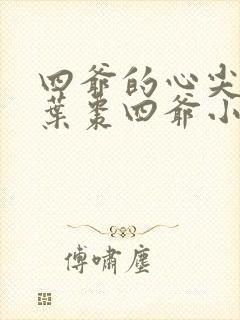 四爺的心尖
葉棗四爺小
傅嘯塵